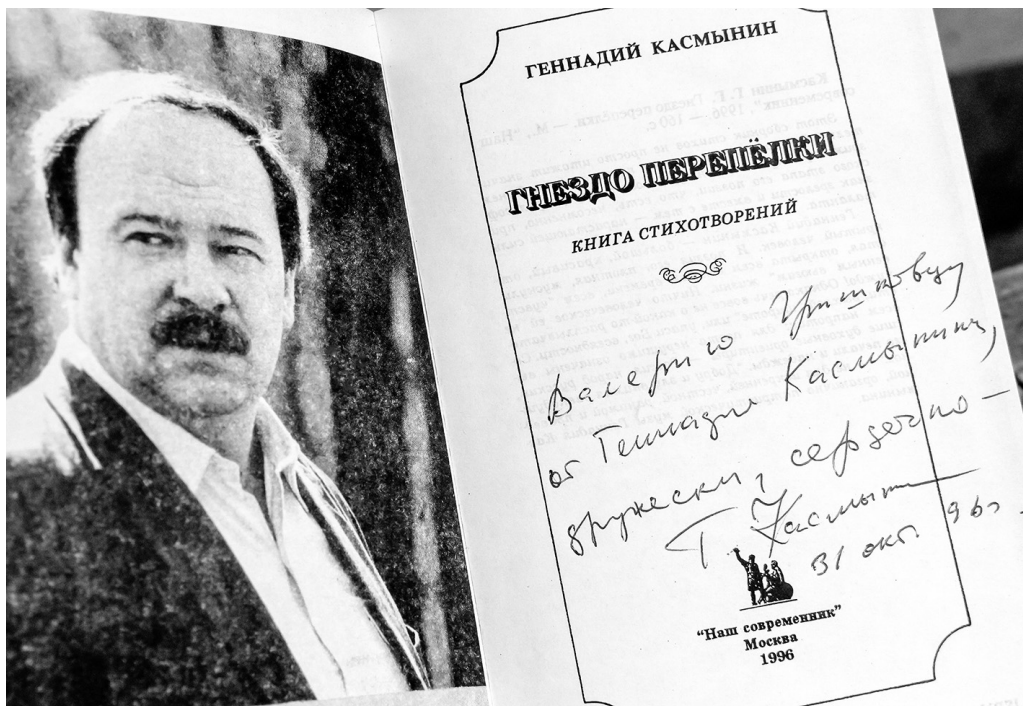 ГЕННАДИЙ КАСМЫНИН
ГНЕЗДО ПЕРЕПЁЛКИ
КНИГА СТИХОТВОРЕНИЙ
Валерию Гришковцу
от Геннадия Касмынина,
дружески, сердечно –
Г Касмынин
31 окт. 96г.
"Наш современник"
Москва
1996